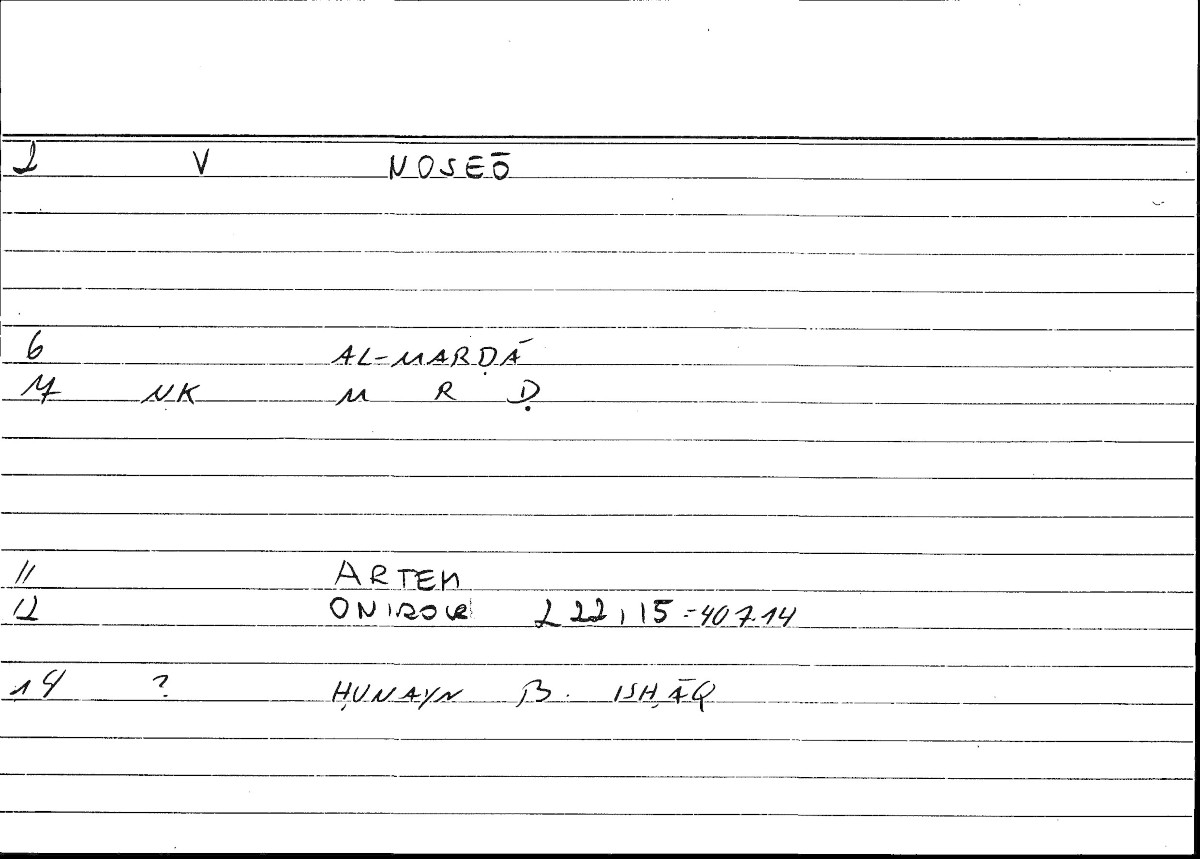 2 V NOSEŌ
6 AL-MARḌĀ
7 NK M R Ḍ
11 ARTEM
12 ONIROCR 222,15 = 407.14
14 ? ḤUNAYN B. ISḤĀQ